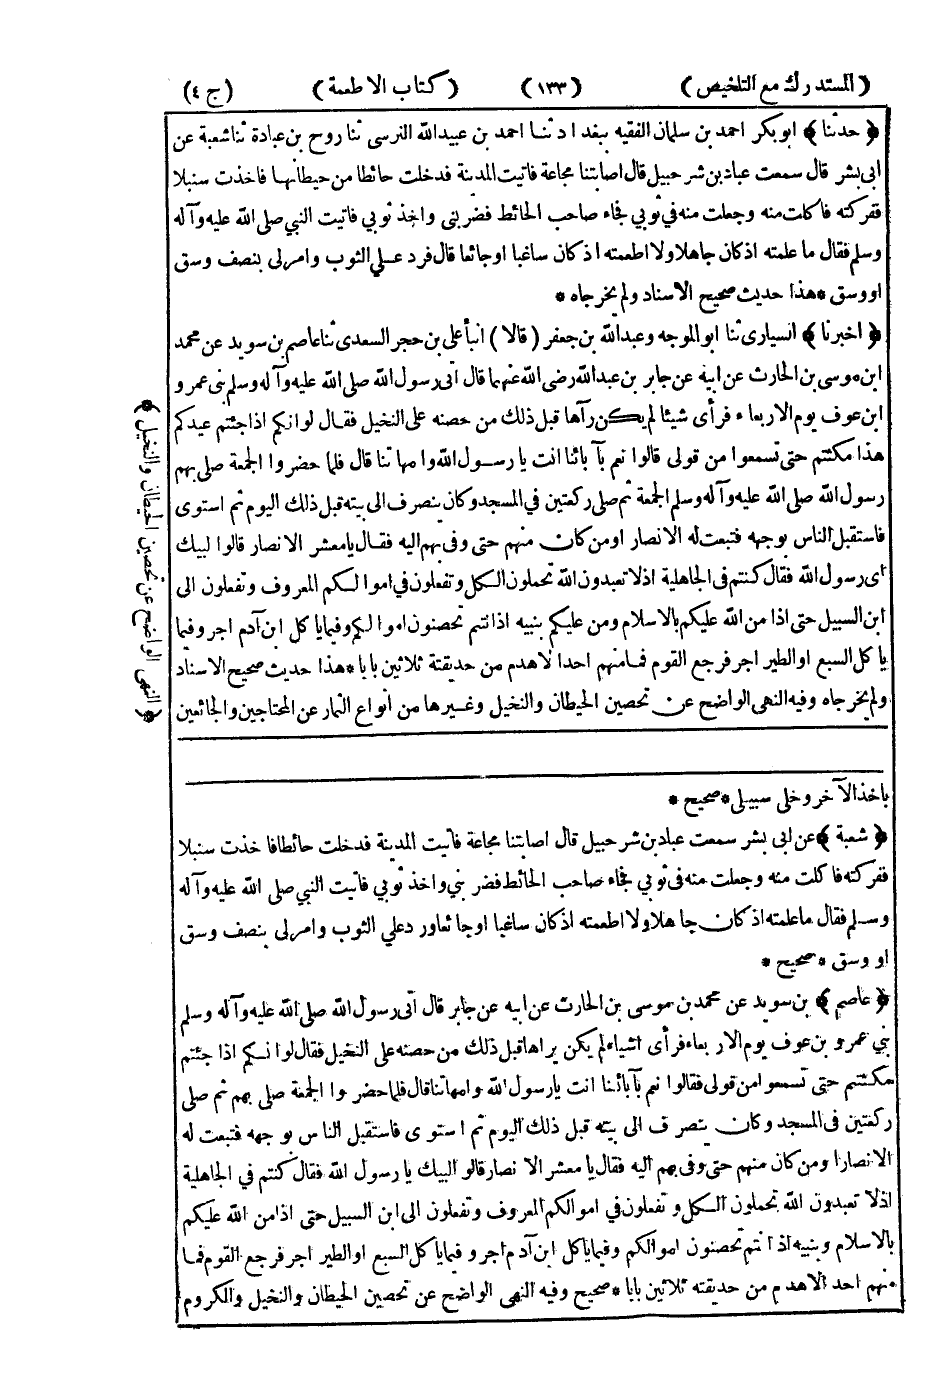 (المستدرك مع التلخيص) (١٣٣) (كتاب الاطعمة) (ج ٤)
﴿ حدثنا ﴾ ابوبكر احمد بن سلمان الفقيه ببغداد ثنا احمد بن عبيدالله النرسى ثنا روح بن عبادة ثنا شعبة عن
ابى بشر قال سمعت عباد بن شرحبيل قال اصابتنا مجاعة فاتيت المدينة فدخلت حائطا من حيطانها فاخذت سنبلا
ففركته فاكلت منه وجعلت منه في ثوبي فجاء صاحب الحائط فضربنى واخذ ثوبي فاتيت النبي صلى الله عليه وآله
وسلم فقال ما علمته اذكان جاهلا ولا اطعمته اذ كان ساغبا اوجائعا قال فرد علي الثوب وامر لى بنصف وسق
او وسق * هذا حديث صحيح الاسناد ولم يخرجاه *
﴿ اخبرنا ﴾ السيارى ثنا ابو الموجه وعبدالله بن جعفر (قالا) انبأ على بن حجر السعدى ثنا عاصم بن سويد عن محمد
ابن موسى بن الحارث عن ابيه عن جابر بن عبدالله رضى الله عنهما قال اتى رسول الله صلى الله عليه وآله وسلم بنى عمرو
ابن عوف يوم الاربعاء فرأى شيئا لم يكن رآها قبل ذلك من حصنه على النخيل فقال لو انكم اذا جئتم عيدكم
هذا مكثتم حتى تسمعوا من قولى قالوا نعم بآبائنا انت يا رسول الله وامهاتنا قال فلما حضروا الجمعة صلى بهم
رسول الله صلى الله عليه وآله وسلم الجمعة ثم صلى ركعتين في المسجد وكان ينصرف الى بيته قبل ذلك اليوم ثم استوى
فاستقبل الناس بوجهه فتبعت له الانصار اومن كان منهم حتى وفى بهم اليه فقال يا معشر الانصار قالوا لبيك
اى رسول الله فقال كنتم فى الجاهلية اذ لا تعبدون الله تحملون الكل وتفعلون في اموالكم المعروف وتفعلون الى
ابن السبيل حتى اذا من الله عليكم بالاسلام ومن عليكم بنبيه اذا انتم تحصنون اموالكم وفيما ياكل ابن آدم اجر وفيما
ياكل السبع او الطير اجر فرجع القوم فما منهم احد الا هدم من حديقته ثلاثين بابا * هذا حديث صحيح الاسناد
ولم يخرجاه وفيه النهى الواضح عن تحصين الحيطان والنخيل وغيرها من أنواع الثمار عن المحتاجين والجائعين
﴿ النهى الواضح عن تحصين الحيطان والنخيل ﴾
ياخذ الآخر وخلى سبيلى * صحيح *
﴿ شعبة ﴾ عن ابى بشر سمعت عباد بن شرحبيل قال اصابتنا مجاعة فاتيت المدينة فدخلت حائطا فاخذت سنبلا
ففركته فاكلت منه وجعلت منه فى ثوبي فجاء صاحب الحائط فضربني واخذ ثوبي فاتيت النبي صلى الله عليه وآله
وسلم فقال ما علمته اذ كان جاهلا ولا اطعمته اذ كان ساغبا اوجائعا ورد علي الثوب وامر لى بنصف وسق
او وسق * صحيح *
﴿ عاصم ﴾ بن سويد عن محمد بن موسى بن الحارث عن ابيه عن جابر قال اتى رسول الله صلى الله عليه وآله وسلم
بني عمرو بن عوف يوم الاربعاء فرأى اشياء لم يكن يراها قبل ذلك من حصنه على النخيل فقال لو انكم اذا جئتم
مكثتم حتى تسمعوا من قولى فقالوا نعم بآبائنا انت يا رسول الله وامهاتنا قال فلما حضروا الجمعة صلى بهم ثم صلى
ركعتين فى المسجد وكان ينصرف الى بيته قبل ذلك اليوم ثم استوى فاستقبل الناس بوجهه فتبعت له
الانصار اومن كان منهم حتى وفى بهم اليه فقال يا معشر الانصار قالوا لبيك يا رسول الله فقال كنتم في الجاهلية
اذ لا تعبدون الله تحملون الكل وتفعلون في اموالكم المعروف وتفعلون الى ابن السبيل حتى اذا من الله عليكم
بالاسلام وبنبيه اذا انتم تحصنون اموالكم وفيما ياكل ابن آدم اجر وفيما ياكل السبع او الطير اجر فرجع القوم فما
منهم احد الا هدم من حديقته ثلاثين بابا * صحيح وفيه النهى الواضح عن تحصين الحيطان والنخيل والكروم